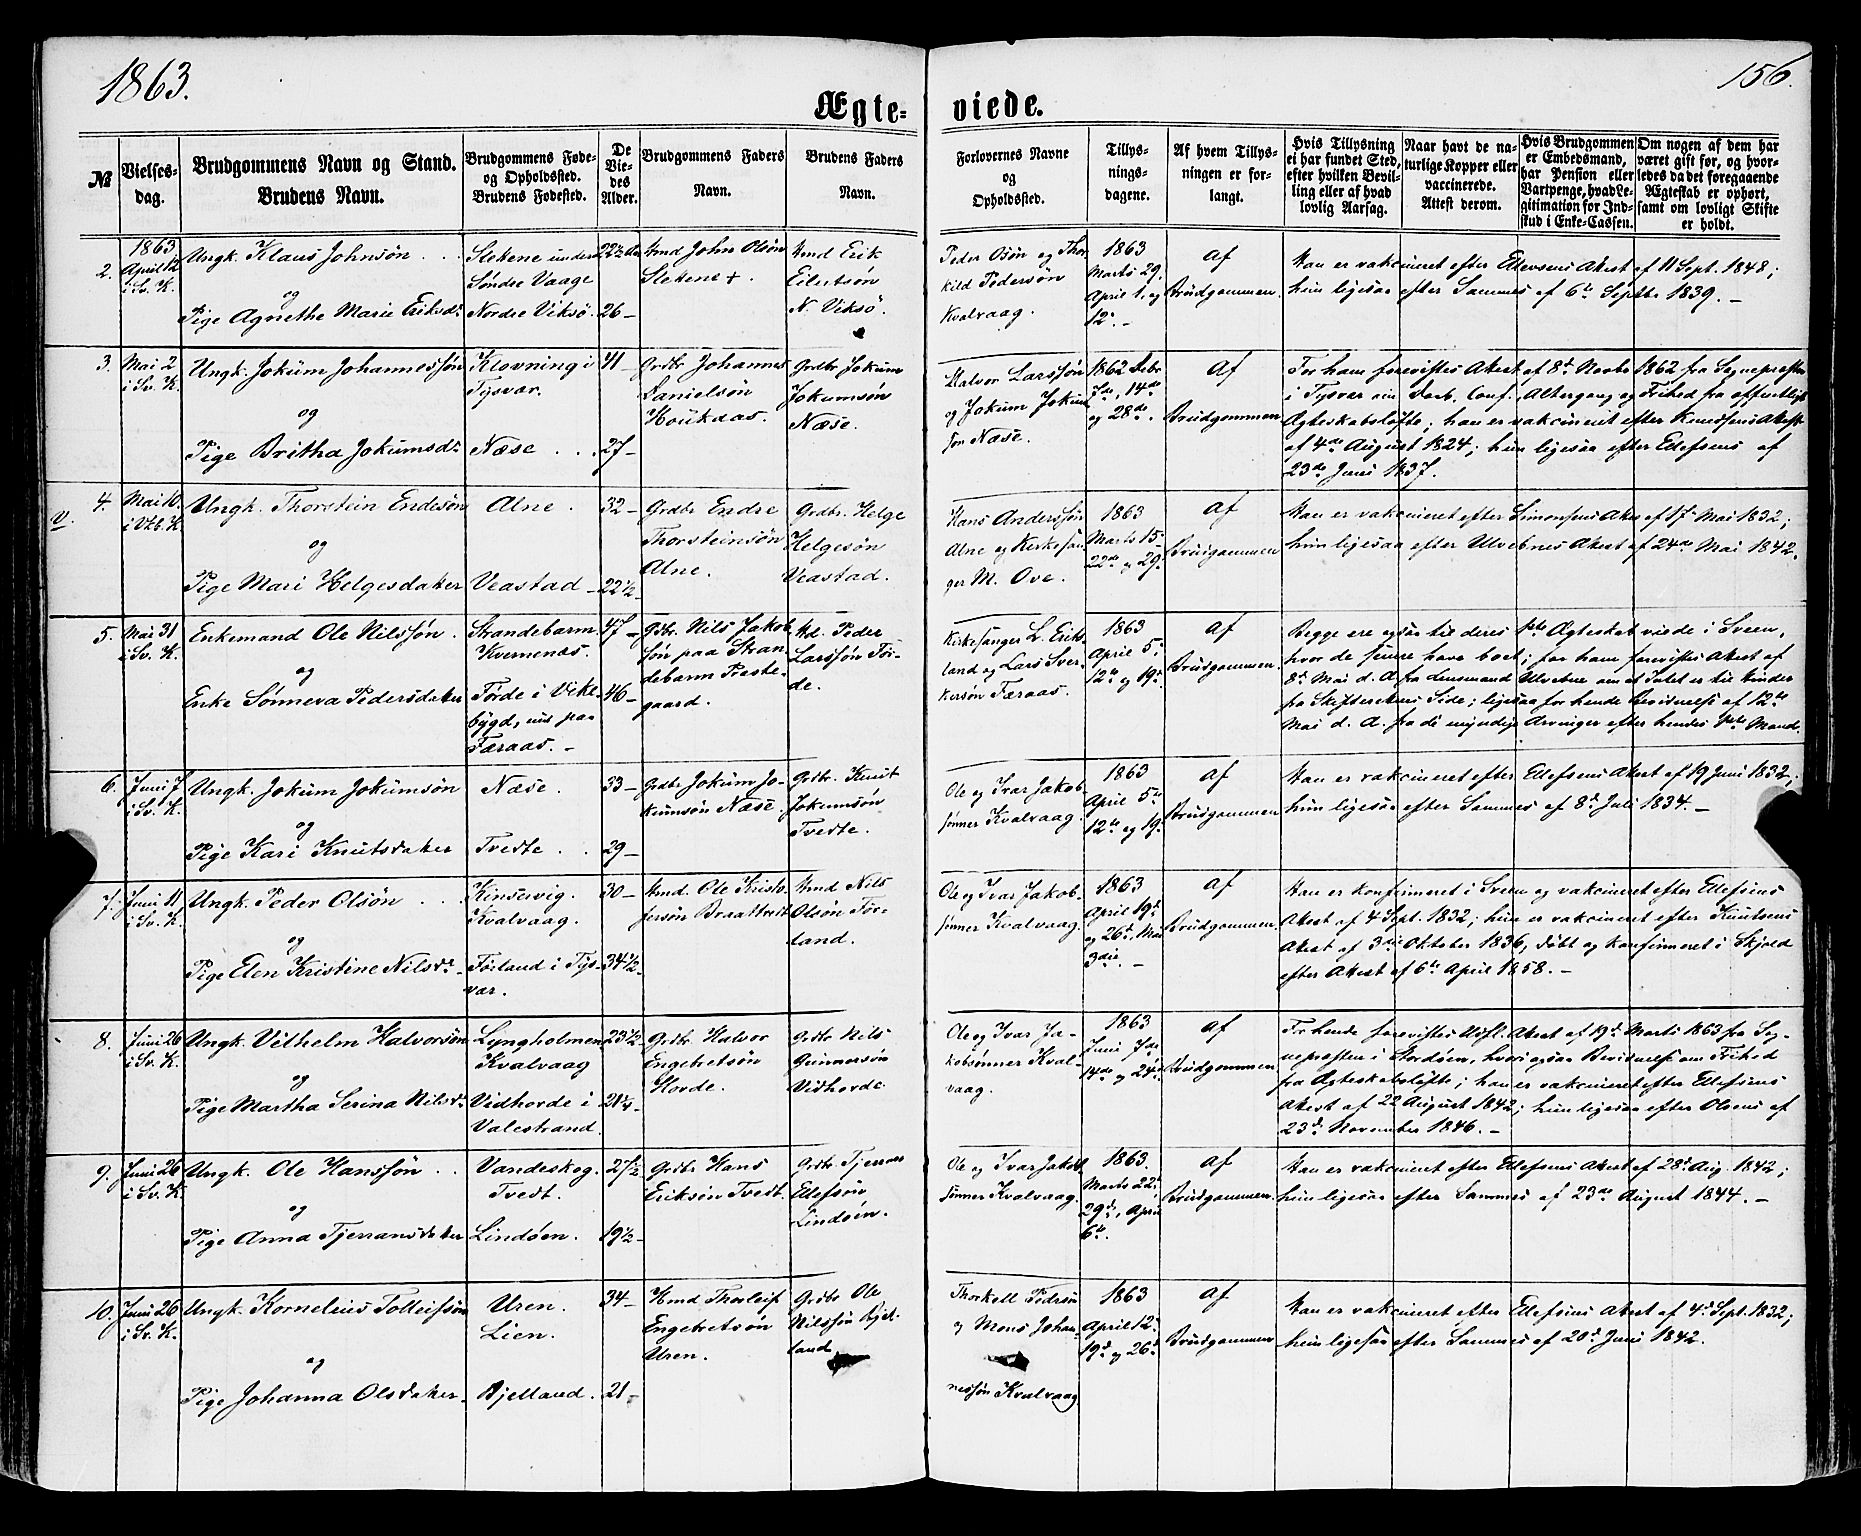 1863.
156.
Ægte-
viede.
№
Vielses-
dag.
Brudgommens Navn og Stand.
Brudens Navn.
Brudgommens Føde-
og Opholdssted.
Brudens Fødested.
De
Vie-
des
Alder.
Brudgommens Faders
Navn.
Brudens Faders
Navn.
Forlovernes Navne
og
Opholdssted.
Tillys-
nings-
dagene.
Af hvem Tillys-
ningen er for-
langt.
Hvis Tillysning
ei har fundet Sted,
efter hvilken Bevil-
ling eller af hvad
lovlig Aarsag.
Naar havt de na-
turlige Kopper eller
vaccinerede.
Attest derom.
Hvis Brudgommen
er Embedsmand,
har Pension eller
Vartpenge, hvad Le-
gitimation for Ind-
skud i Enke-Cassen.
Om nogen af dem har
været gift før, og hvor-
ledes da det foregaaende
Ægteskab er ophørt,
samt om lovligt Skifte
er holdt.
2.
1863
April 12
i Sv. K.
Ungk. Klaus Johnsøn
og
Pige Agnethe Marie Eriksdr
Slekene under
Søndre Vaage
Nordre Viksø
22½
26
Hmd John Olsøn
Slekene +
Hmd Erik
Eilertsøn
N. Viksø.
Peder og Thor
kild Pedersøn
Kvalvaag.
1863
Marts 29.
April 1. og
12.
Af
Brudgommen.
Han er vakcineret efter Ellevsens Atest af 11 Sept. 1848;
hun ligesaa efter Sammes af 6te Septbr 1839.
3.
Mai 2
i Sv. K.
Ungk. Jokum Johannessøn
og
Pige Britha Jokumsdr
Klovning i
Tysvar.
Næse
41
27
Grdbr Johannes
Danielsøn
Grdbr. Jokum
Jokumsøn
Næse.
Halvor Larssøn
og Jokum Jokum
søn Næse.
1862 Febr
7de, 14de
og 28de.
Af
Brudgommen
For ham forevistes Atest af 8de Marts 1862 fra Sognepresten
i Tysvar om Daab, Conf., Altergang og Frihed fra offentligt
Ægteskabsløfte; han er vakcineret efter Knudsens Atest
af 4de August 1824; hun ligesaa efter Ellefsens af
23de Juni 1837.
v.
4.
Mai 10.
Ungk. Thorstein Endresøn
og
Pige Mari Helgesdatter
Alne.
Veastad
32
22½
Grdbr Endre
Thorsteinsøn
Alne.
Grdbr. Helge
Helgesøn
Veastad.
Hans Anderssøn
Alne og Kirkesan
ger M. Ove.
1863
Marts 15.
22de og 29.
Af
Brudgommen
Han er vakcineret efter Simonsens Atest af 17 Mai 1832;
hun ligesaa efter Ulvebnes Atest af 24de Mai 1842.
5.
Mai 31
i Sv. K.
Enkemand Ole Nilssøn.
og
Enke Sønneva Pedersdatter
Strandebarm
Kvernenæs.
Førde i Vike
bygd, nu paa
Færaas.
47
46
Gdbr. Nils Jakob
søn paa Stran
debarm Preste-
gaard.
Hd. Peder
Larssøn Før-
de.
Kirkesanger L. Eriks
land og Lars Sver-
kersøn Færaas.
1863
April 5.
12te og 19.
Af
Brudgommen
Begge ere ogsaa til deres 1ste Ægteskab viede i Sveen,
hvor de senere have boet; for ham forevistes Atest af
8de Mai d. A. fra Lensmand Ulvebne om at Intet er til Hinder
fra Skifterettens Side; ligesaa for hende Bevidnelse af 12te
Mai d. A. fra de myndige Arvinger efter hendes 1ste Mand.
6.
Juni 7
i Sv. K.
Ungk. Jokum Jokumsøn
og
Pige Kari Knutsdatter
Næse.
Tvedte.
33
29
Grdbr Jokum Jo-
kumsøn Næse.
Grdbr. Knut
Jokumsøn
Tvedte.
Ole og Ivar Jakob
sønner Kvalvaag.
1863
April 5te
12te og 19.
Af
Brudgommen
Han er vakcineret efter Ellefsens Atest af 19 Juni 1832;
hun ligesaa efter Sammes af 8de Juli 1834.
7.
Juni 11
i Sv. K.
Ungk. Peder Olsøn
og
Pige Elen Kristine Nilsdr
Kinservig.
Kvalvaag.
Førland i Tys-
var.
30
34½
Hmd. Ole Kristo
fersøn Braattveit
Hmd Nils
Olsøn Før-
land.
Ole og Ivar Jakob-
sønner Kvalvaag.
1863
April 19.
og 26de. Mai
3die.
Af
Brudgommen.
Han er konfirmeret i Sveen og vakcineret efter Ellefsens
Atest af 4 Sept. 1832; hun er vakcineret efter Knutsens
Atest af 3die Oktober 1836, døbt og konfirmeret i Skjold
efter Atest af 6te April 1858.
8.
Juni 26
i Sv. K.
Ungk. Vilhelm Halvorsøn
og
Pige Martha Serina Nilsdr
Lyngholmen
Kvalvaag
Vidhorde i
Valestrand.
23½
21¼
Grdbr Halvor
Engebretsøn
Horde.
Grdbr Nils
Gunnersøn
Vidhorde
Ole og Ivar Ja-
kobsønner Kval-
vaag.
1863
Juni 7de,
14de og 24de
Af
Brudgommen
For hende forevistes Udfl. Atest af 19de Marts 1863 fra Sog-
nepresten i Stordøen, hvori ogsaa Bevidnelse om Frihed
fra Ægteskabsløfte; han er vakcineret efter Ellefsens
Atest af 22 August 1842; hun ligesaa efter Olsens af
23de November 1846.
9.
Juni 26
i Sv. K.
Ungk. Ole Hanssøn
og
Pige Anna Tjerransdatter
Vandeskog.
Tvedt.
Lindøen.
27½
19½
Grdbr Hans
Eriksøn Tvedt.
Grdbr. Tjerran
Ellefsøn
Lindøen.
Ole og Ivar Jakob
sønner Kvalvaag.
1863.
Marts 22.
29de, April
6te.
Af
Brudgommen.
Han er vakcineret efter Ellefsens Atest af 28de Aug. 1842;
hun ligesaa efter Sammes af 23de August 1844.
10.
Juni 26
i Sv. K.
Ungk. Kornelius Tolleifsøn
og
Pige Johanna Olsdatter
Uren.
Lien.
Bjelland.
34
21
Hmd Thorleif
Engebretsøn
Uren.
Grdbr Ole
Nilssøn Bjel-
land
Thorkell Pedersøn
og Mons Johan
nessøn Kvalvaag
1863
April 12.
19de og 26de
Af
Brudgommen
Han er vakcineret efter Ellefsens Atest af 4de Sept. 1832;
hun ligesaa efter Sammes af 20de Juni 1842.